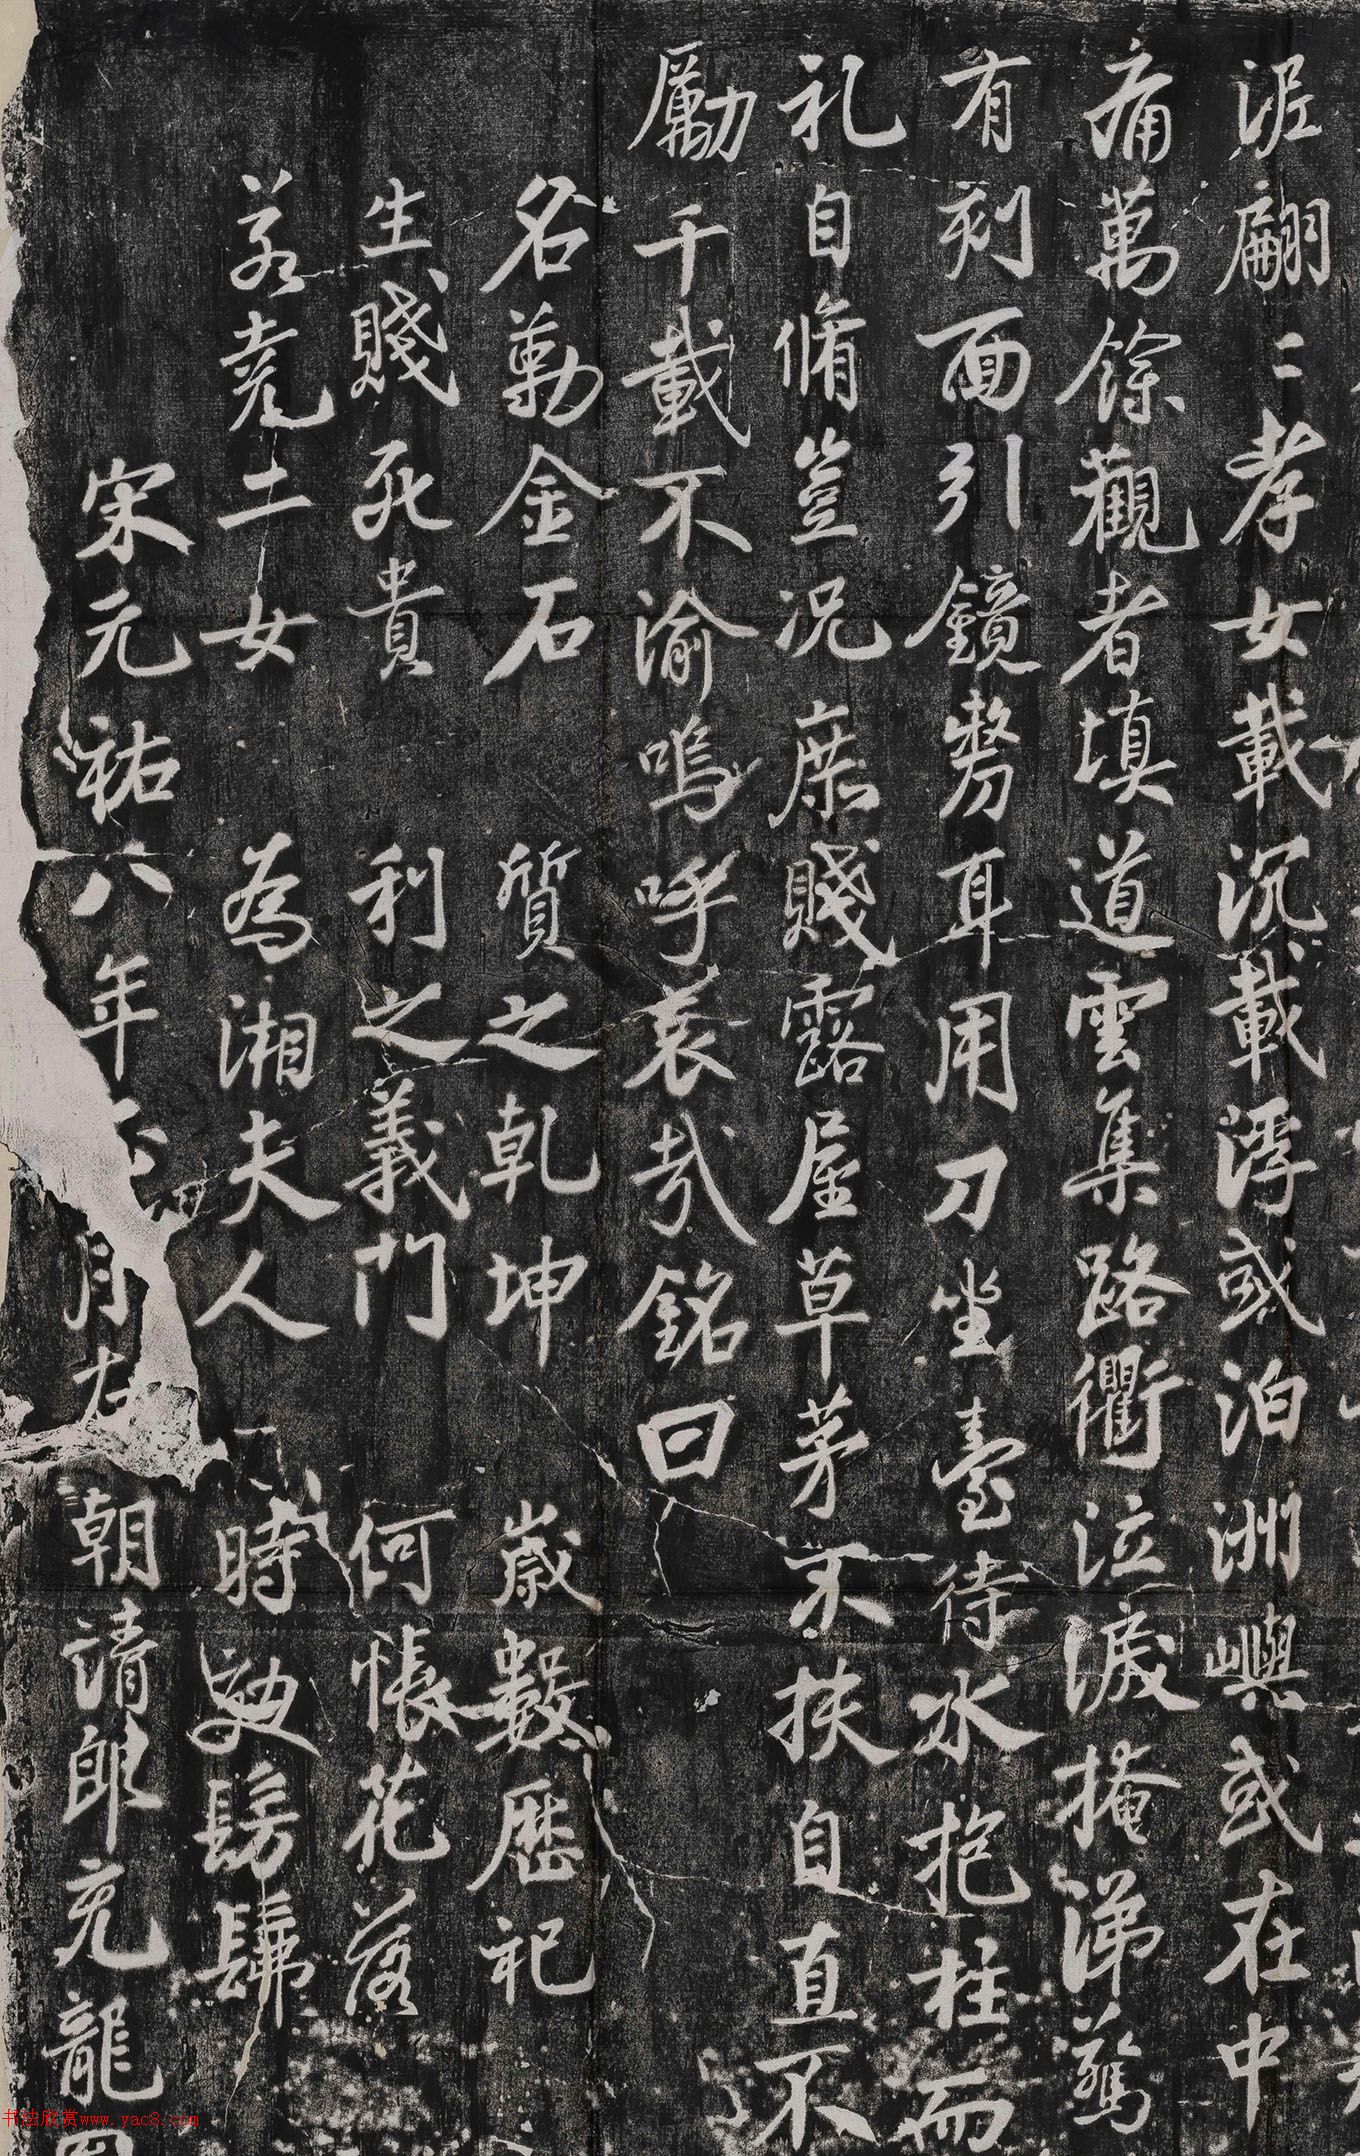 泥翩二孝女載沉載浮或泊洲嶼或在中
痛萬餘觀者填道雲集路衢泣淚掩涕驚
有刻面引鏡剺耳用刀坐臺待水抱柱而
礼自脩豈況庶賤露屋草茅不扶自直不
厲千載不渝嗚呼哀哉銘曰
名勒金石 質之乾坤 歲數歷祀
生賤死貴 利之義門 何悵花落
若堯二女 為湘夫人 時效髣髴
宋元祐八年正月左朝請郎充龍圖
书法欣赏www.yac8.com